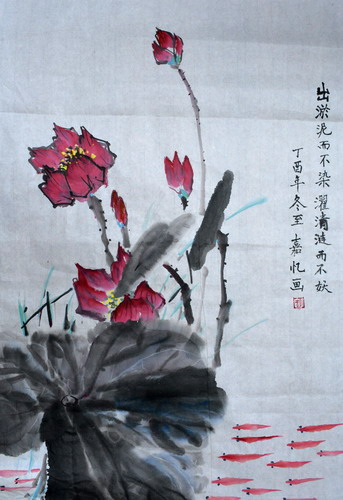 出淤泥而不染濯清涟而不妖
丁酉年冬至嘉忆画